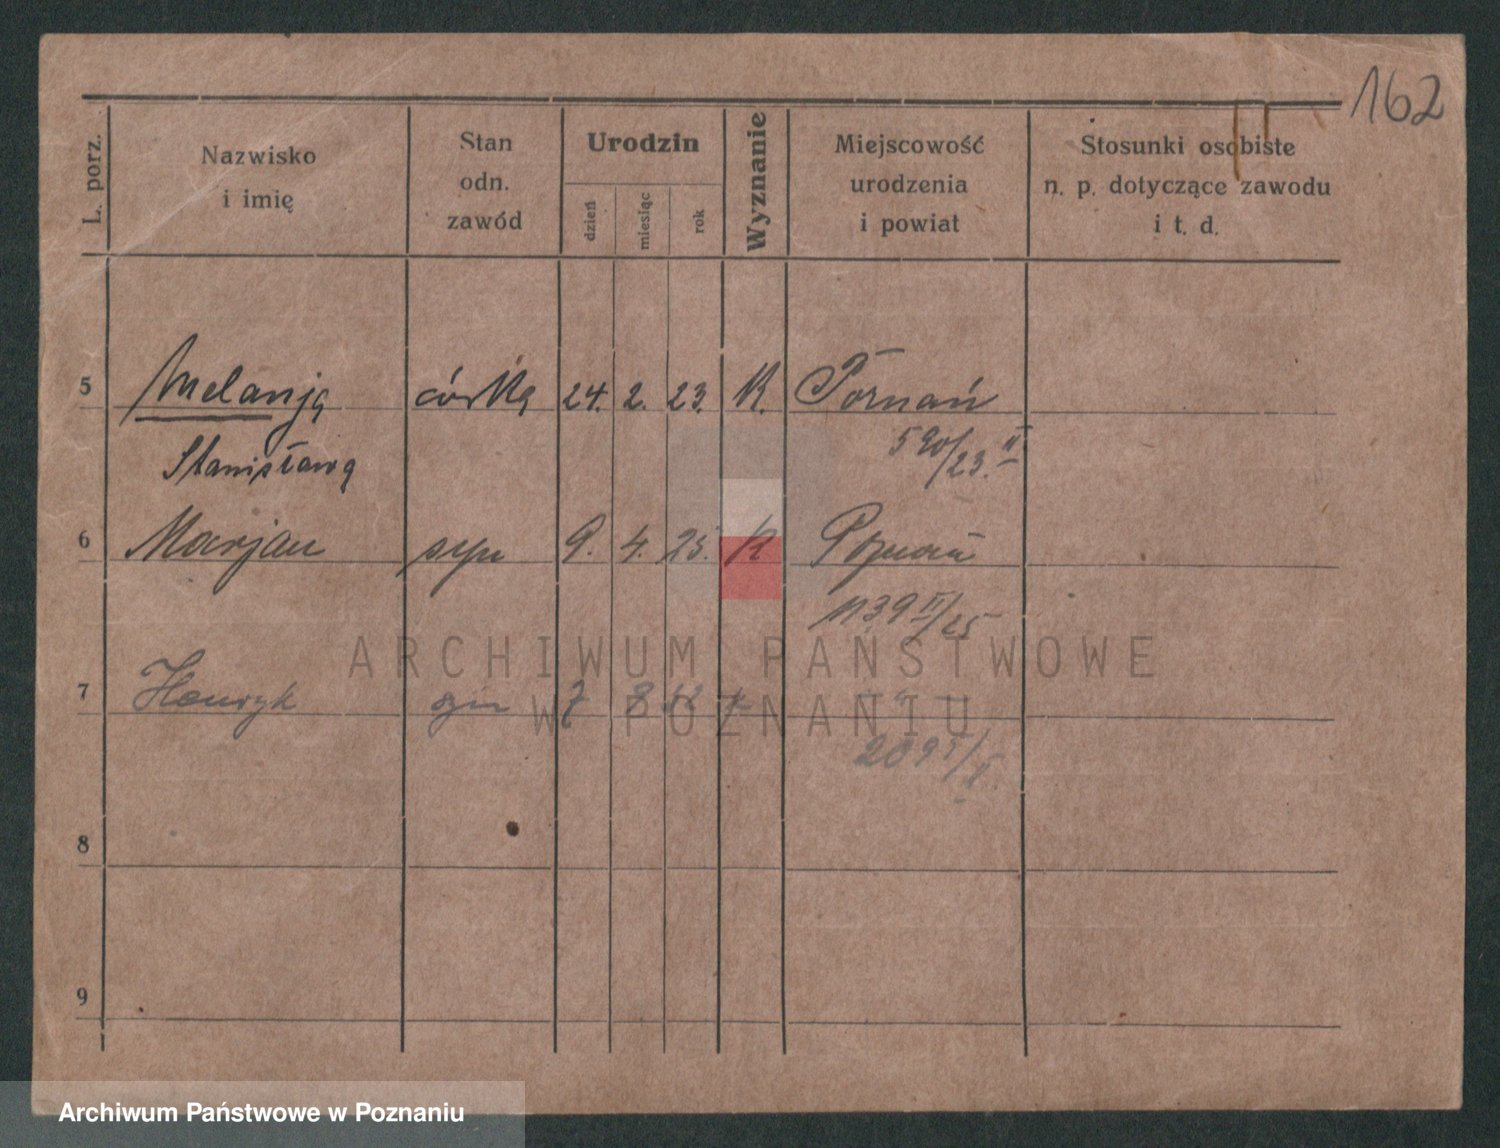 162
L. porz.
Nazwisko
i imię
Stan
odn.
zawód
Urodzin
dzień
miesiąc
rok
Wyznanie
Miejscowość
urodzenia
i powiat
Stosunki osobiste
n. p. dotyczące zawodu
i t. d.
5 Melanja córka 24. 2. 23. K. Poznań
590/23. II
Stanisława
6 Marjan syn 9. 4. 25. K Poznań
1139 II/25
ARCHIWUM PAŃSTWOWE
7 Henryk syn 7 8
W POZNANIU
8
9
Archiwum Państwowe w Poznaniu